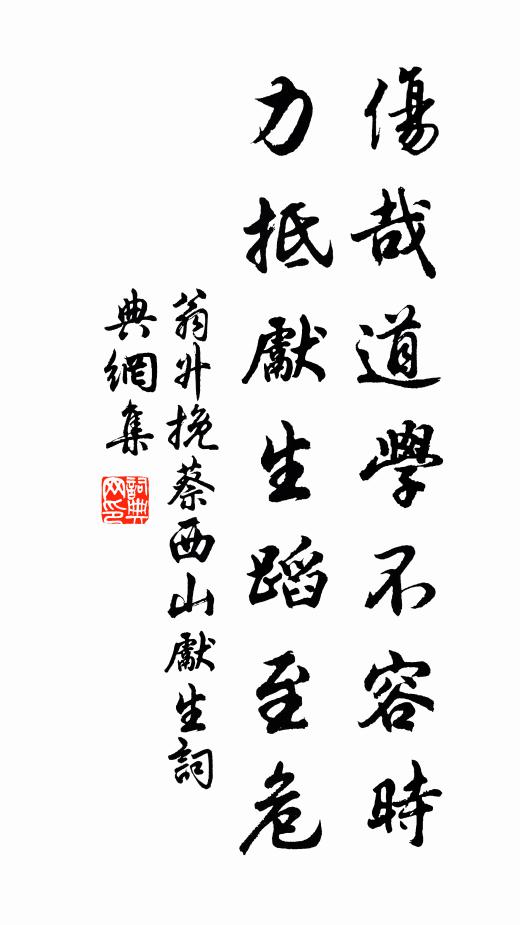 傷哉道學不容時
力抵獻生蹈至危
翁升挽蔡西山獻生詞
典網集
詞典網印